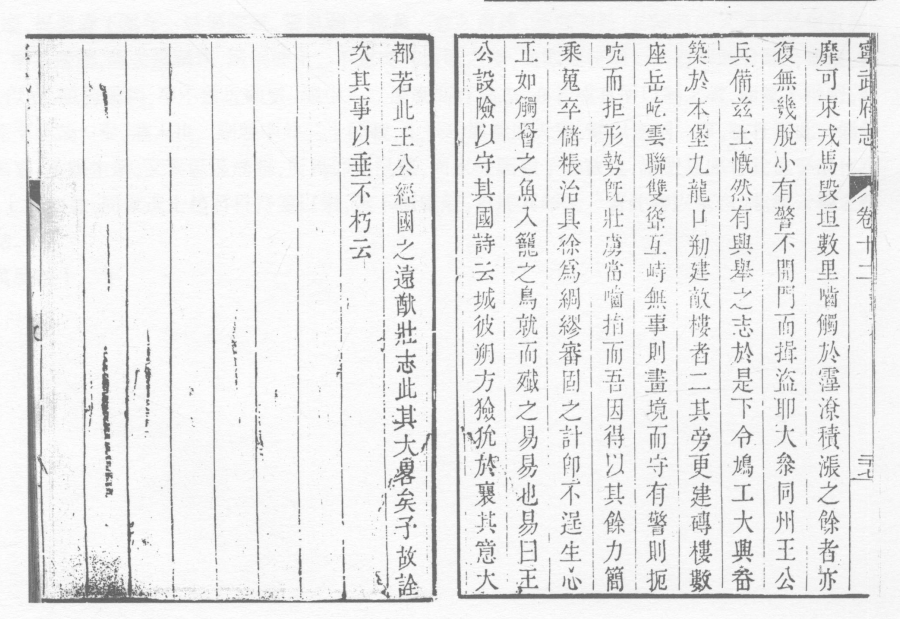 寧武府志
卷十二
靡可束戎馬毀垣數里嚙觸於霪潦積漲之餘者亦
復無幾脫小有警不開門而揖盜耶大叅同州王公
兵備兹土慨然有興舉之志於是下令鳩工大興畚
築於本堡九龍口剏建敵樓者二其旁更建磚樓數
座岳屹雲聯雙聳互峙無事則畫境而守有警則扼
吭而拒形勢旣壯虜當嚙指而吾因得以其餘力簡
乘蒐卒儲粻治具徐爲綢繆審固之計卽不逞生心
正如觸罾之魚入籠之鳥就而殲之易易也易曰王
公設險以守其國詩云城彼朔方獫狁於襄其意大
都若此王公經國之遠猷壯志此其大畧矣予故詮
次其事以垂不朽云